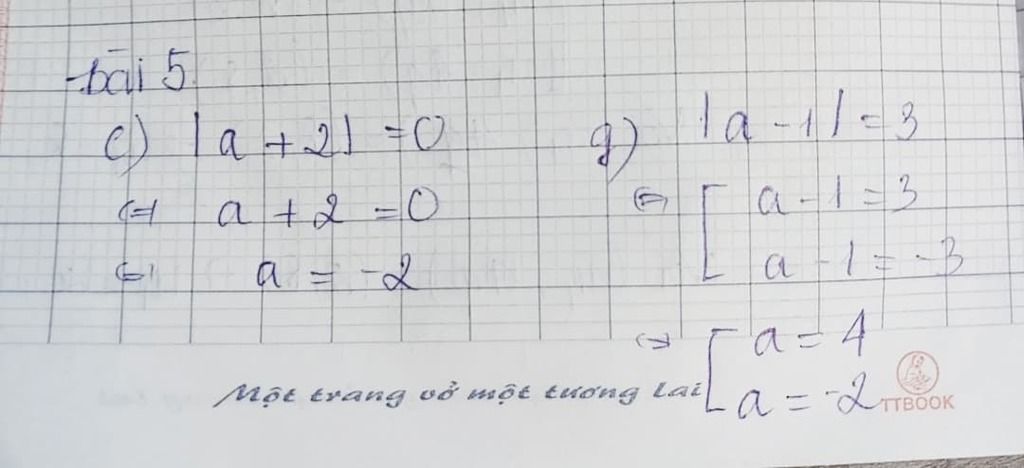 bài 5.
c) |a + 2| = 0
⇔ a + 2 = 0
⇔ a = -2
g) |a - 1| = 3
⇔ [ a - 1 = 3
a - 1 = -3
⇔ [ a = 4
a = -2
Một trang vở một tương lai
TTBOOK